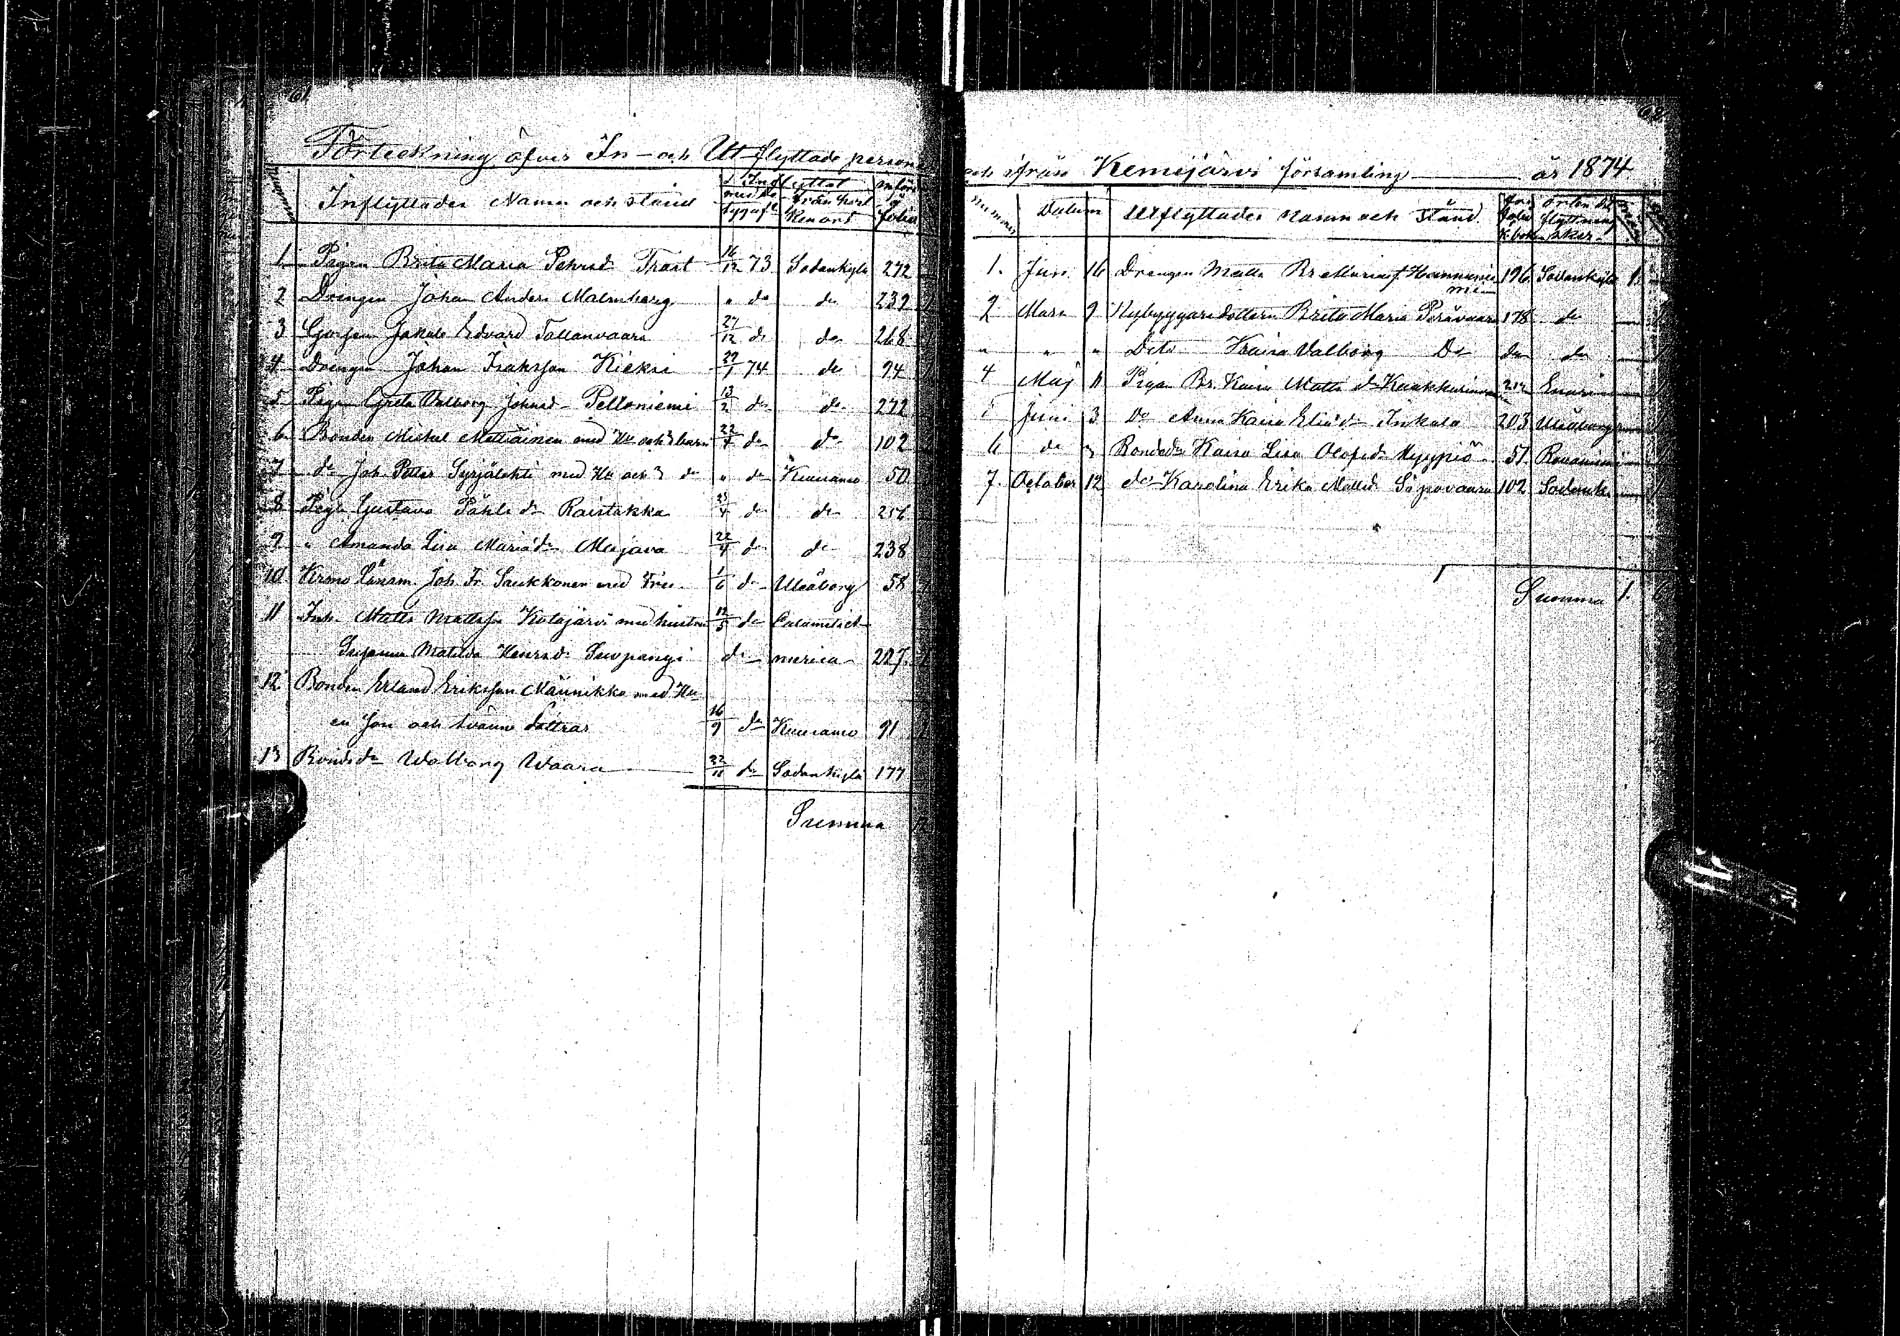 61
Förteckning öfver In- och Utflyttade person
Inflyttades Namn och stånd
1. Pigan Brita Maria Pehrsd. Trast 16/12 73 Sodankylä 272
2 Drengen Johan Anders Malmberg " do do 239
3 Gossen Jakob Edvard Tallavaara 27/12 do do 268
4. Drengen Johan Isaksson Kieksi 29/1 74 do 94
5 Pigan Greta Valborg Johansd. Pelloniemi 13/2 do do 272
6 Bonden Michel Mattiainen med Hu och 3 barn 22/4 do do 102
7 do Joh. Petter Syrjälehti med Hu och 3 do " do Kuusamo 50
8 Pig. Gustava Påhls dr Raistakka do do 256
9 " Amanda Lisa Mariasdr Majava 22/4 do do 238
10 Krono Länsm. Joh. Fr. Saukkonen med Fru 1/6 do Uleåborg 58
11 Inh. Matts Mattsson Kotajärvi med hustru 12/5 do Calumet
Susanna Matilda Henrsdr. Suopangi do merica 227
12 Bonden Erland Eriksson Männikkö med Hu
en son och tvänne döttrar 16/9 do Kuusamo 91
13 Bondedr Walborg Waara 22/11 do Sodankylä 177
Summa
och ifrån Kemijärvi församling år 1874
Datum Utflyttades namn och Stånd
1. Jun. 16 Drengen Matts Br. Mariasf. Hanniniemi 196 Sodankylä 1.
2 Mars 9 Nybyggaredottern Brita Maria Perävaara 178 do
" " " Dito Kaisa Valborg Do do do
4 Maj 11 Pigan Br. Kaisa Matts dr Enari
5 Juni 3 Do Anna Kaisa Eliasdr Inkala 203 Uleåborg
6 do " Bondedr Kaisa Lisa Olofsdr Hyypiö 51 Rovaniemi
7. October 12 do Karolina Erika Mattsdr Säpovaara 102 Sodank.
Summa 1. 6